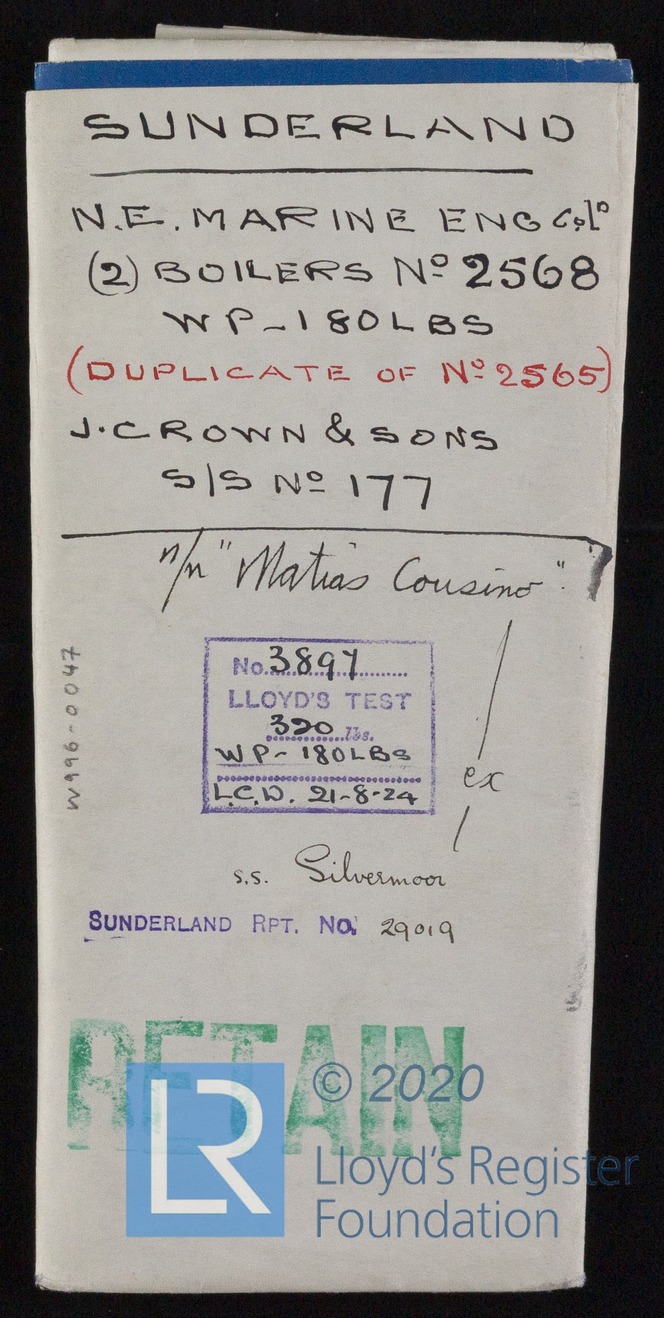 SUNDERLAND
N.E. MARINE ENG Co Ld
(2) BOILERS No 2568
WP-180LBS
(DUPLICATE OF No 2565)
J. CROWN & SONS
S/S No 177
n/n "Matias Cousino"
No. 3897
LLOYD'S TEST
320 lbs.
WP- 180LBS
L.C.D. 21-8-24
ex
s.s. Silvermoor
SUNDERLAND RPT. No. 29019
W996-0047
RETAIN
LR
© 2020
Lloyd's Register
Foundation